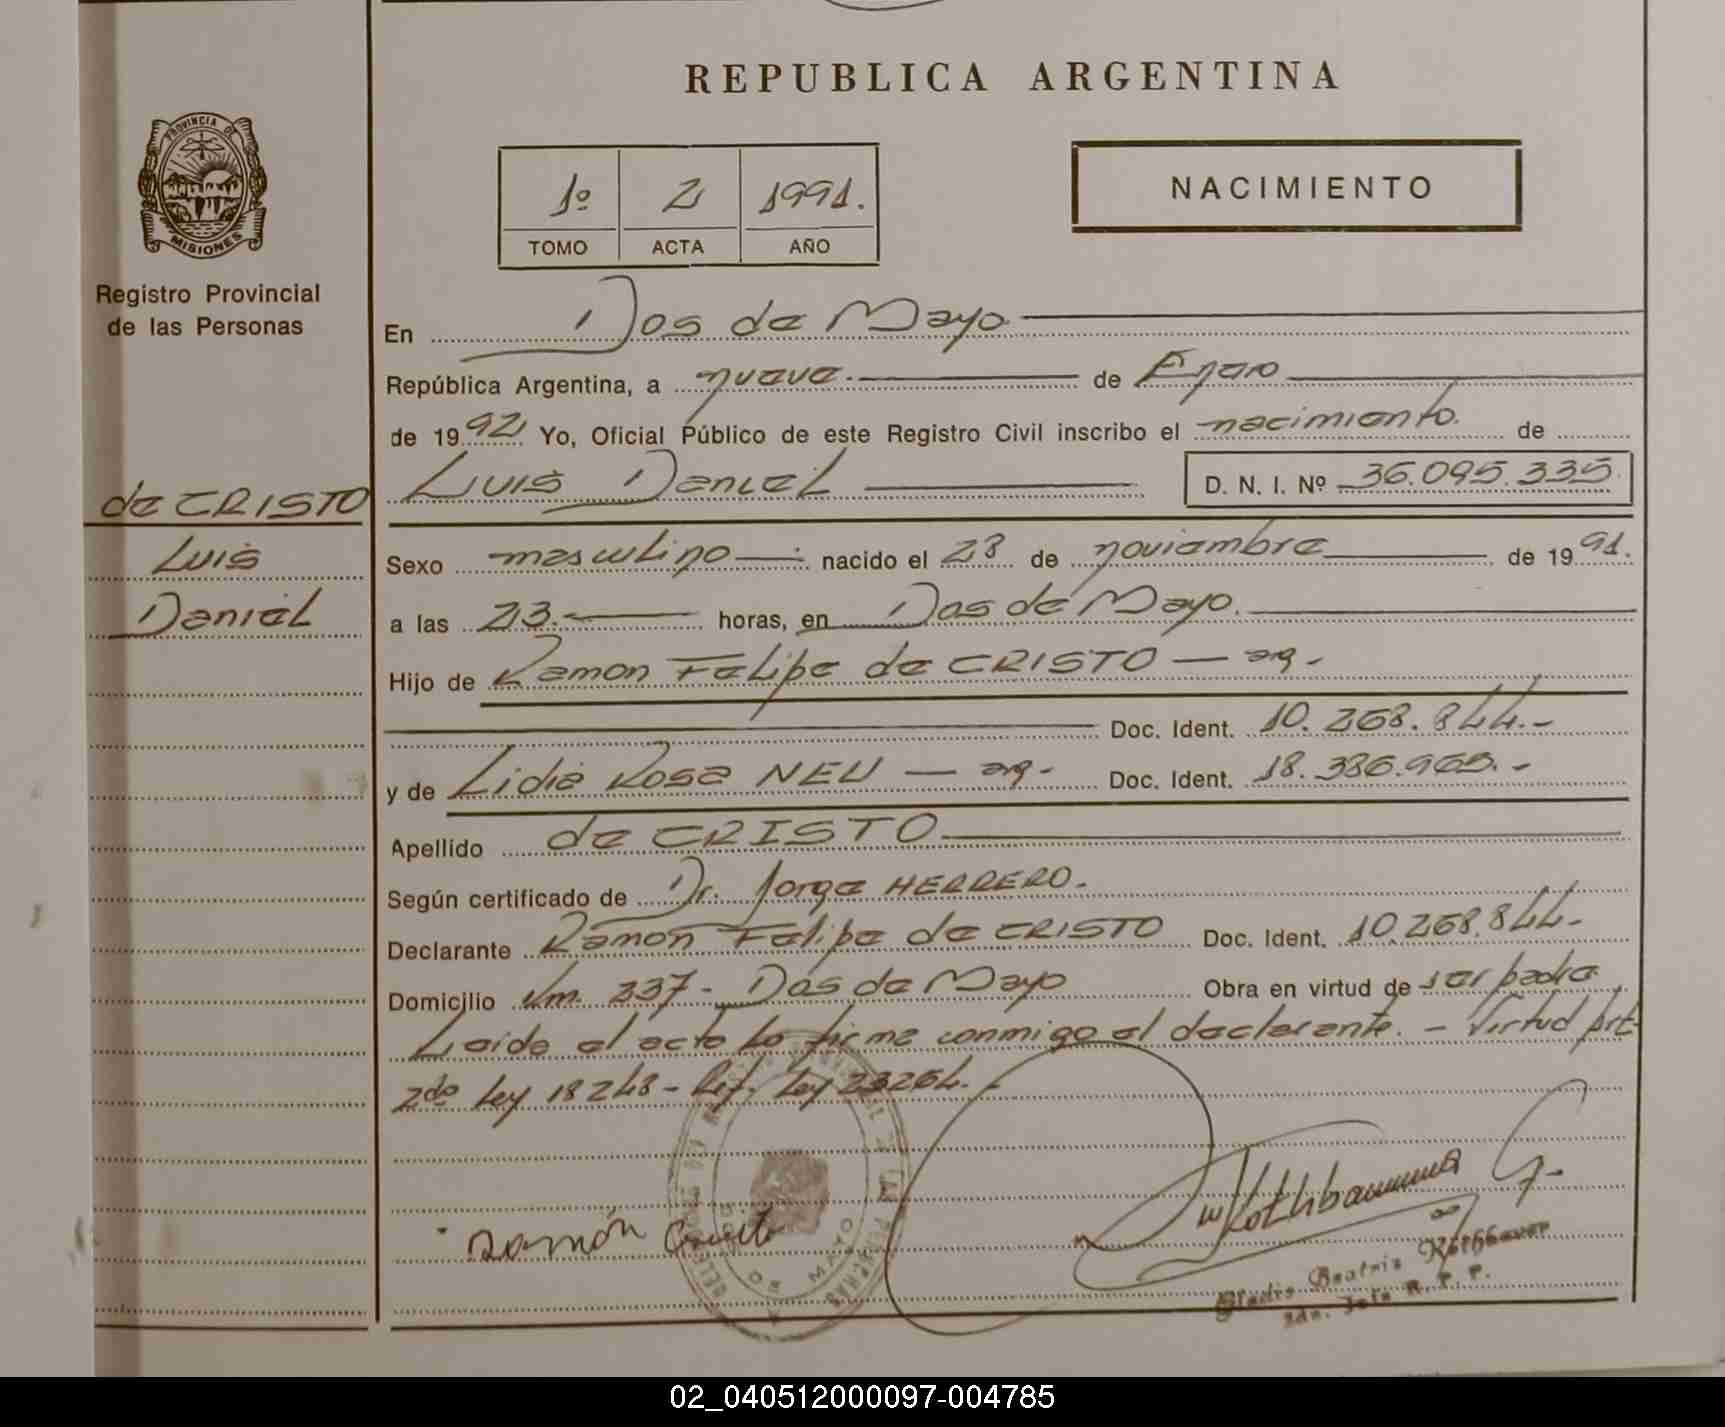 REPUBLICA ARGENTINA
PROVINCIA DE
MISIONES
Registro Provincial
de las Personas
1º 2 1991.
TOMO ACTA AÑO
NACIMIENTO
En Dos de Mayo
República Argentina, a nueve. de Enero
de 1992 Yo, Oficial Público de este Registro Civil inscribo el nacimiento. de
Luis Daniel D. N. I. Nº 36.095.335.
de CRISTO
Luis
Daniel
Sexo masculino nacido el 28 de noviembre de 1991.
a las 23. horas, en Dos de Mayo.
Hijo de Ramon Felipe de CRISTO — arg.-
Doc. Ident. 10.268.844.-
y de Lidia Rosa NEU — arg.- Doc. Ident. 18.386.965.-
Apellido de CRISTO
Según certificado de Dr. Jorge HERRERO.
Declarante Ramon Felipe de CRISTO Doc. Ident. 10.268.844-
Domicilio Km. 237- Dos de Mayo Obra en virtud de ser padre
Leida el acta la firma conmigo el declarante. - Virtud Art
2do Ley 18248- Ref. Ley 23264.-
Ramón Cristo
DOS DE MAYO
Gladis Beatriz
02_040512000097-004785